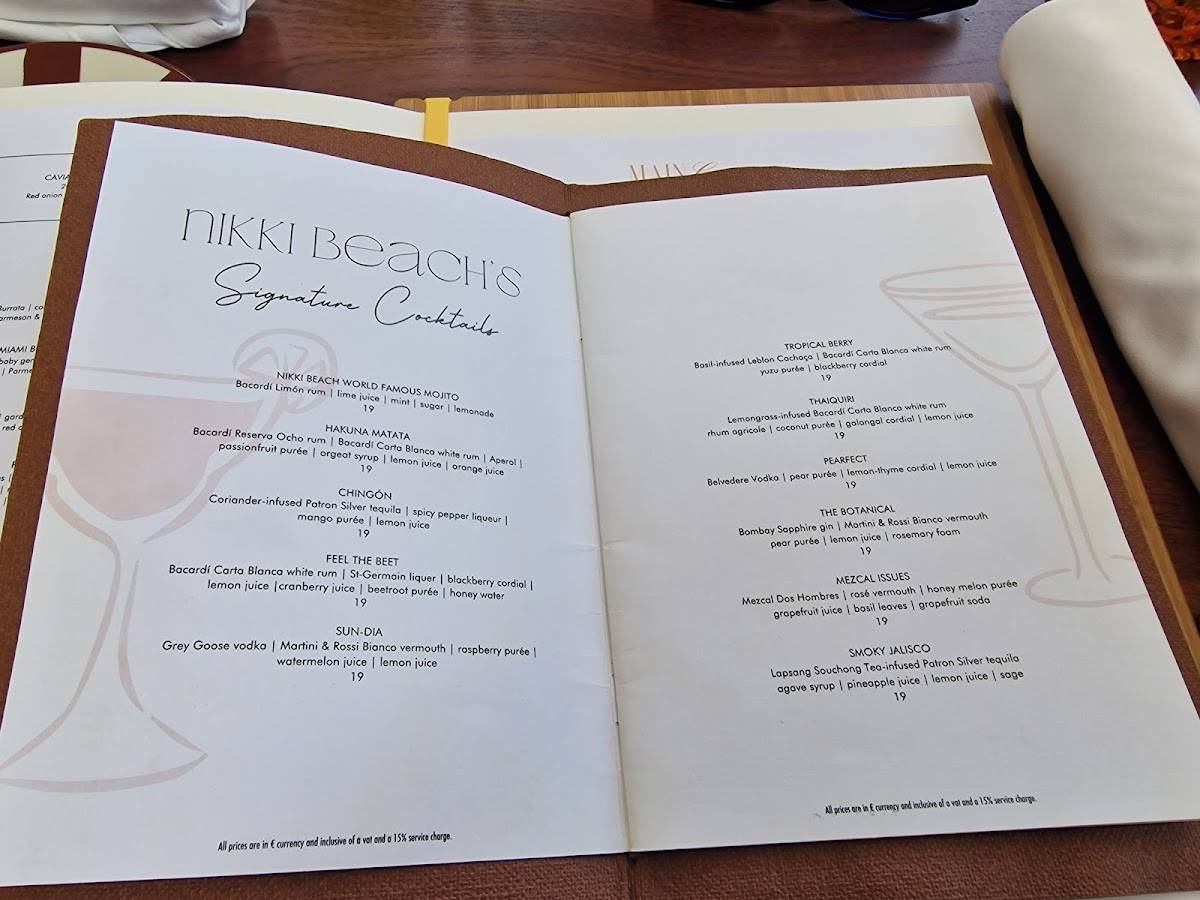 CAVIA
Red onion
Burrata | co
armeson &
MIAMI B
baby gen
| Parme
gard
red c
MAIN C
NIKKI BEACH'S
Signature Cocktails
NIKKI BEACH WORLD FAMOUS MOJITO
Bacardí Limón rum | lime juice | mint | sugar | lemonade
19
HAKUNA MATATA
Bacardí Reserva Ocho rum | Bacardí Carta Blanca white rum | Aperol |
passionfruit purée | orgeat syrup | lemon juice | orange juice
19
CHINGÓN
Coriander-infused Patron Silver tequila | spicy pepper liqueur |
mango purée | lemon juice
19
FEEL THE BEET
Bacardí Carta Blanca white rum | St-Germain liquer | blackberry cordial |
lemon juice |cranberry juice | beetroot purée | honey water
19
SUN-DIA
Grey Goose vodka | Martini & Rossi Bianco vermouth | raspberry purée |
watermelon juice | lemon juice
19
All prices are in € currency and inclusive of a vat and a 15% service charge.
TROPICAL BERRY
Basil-infused Leblon Cachaça | Bacardí Carta Blanca white rum
yuzu purée | blackberry cordial
19
THAIQUIRI
Lemongrass-infused Bacardí Carta Blanca white rum
rhum agricole | coconut purée | galangal cordial | lemon juice
19
PEARFECT
Belvedere Vodka | pear purée | lemon-thyme cordial | lemon juice
19
THE BOTANICAL
Bombay Sapphire gin | Martini & Rossi Bianco vermouth
pear purée | lemon juice | rosemary foam
19
MEZCAL ISSUES
Mezcal Dos Hombres | rosé vermouth | honey melon purée
grapefruit juice | basil leaves | grapefruit soda
19
SMOKY JALISCO
Lapsang Souchong Tea-infused Patron Silver tequila
agave syrup | pineapple juice | lemon juice | sage
19
All prices are in € currency and inclusive of a vat and a 15% service charge.